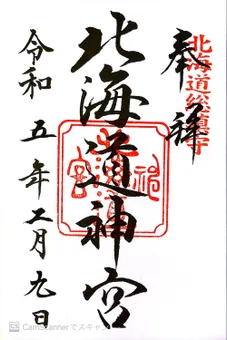 奉拝
北海道総鎮守
北海道神宮
令和五年二月九日
CS CamScanner でスキャン